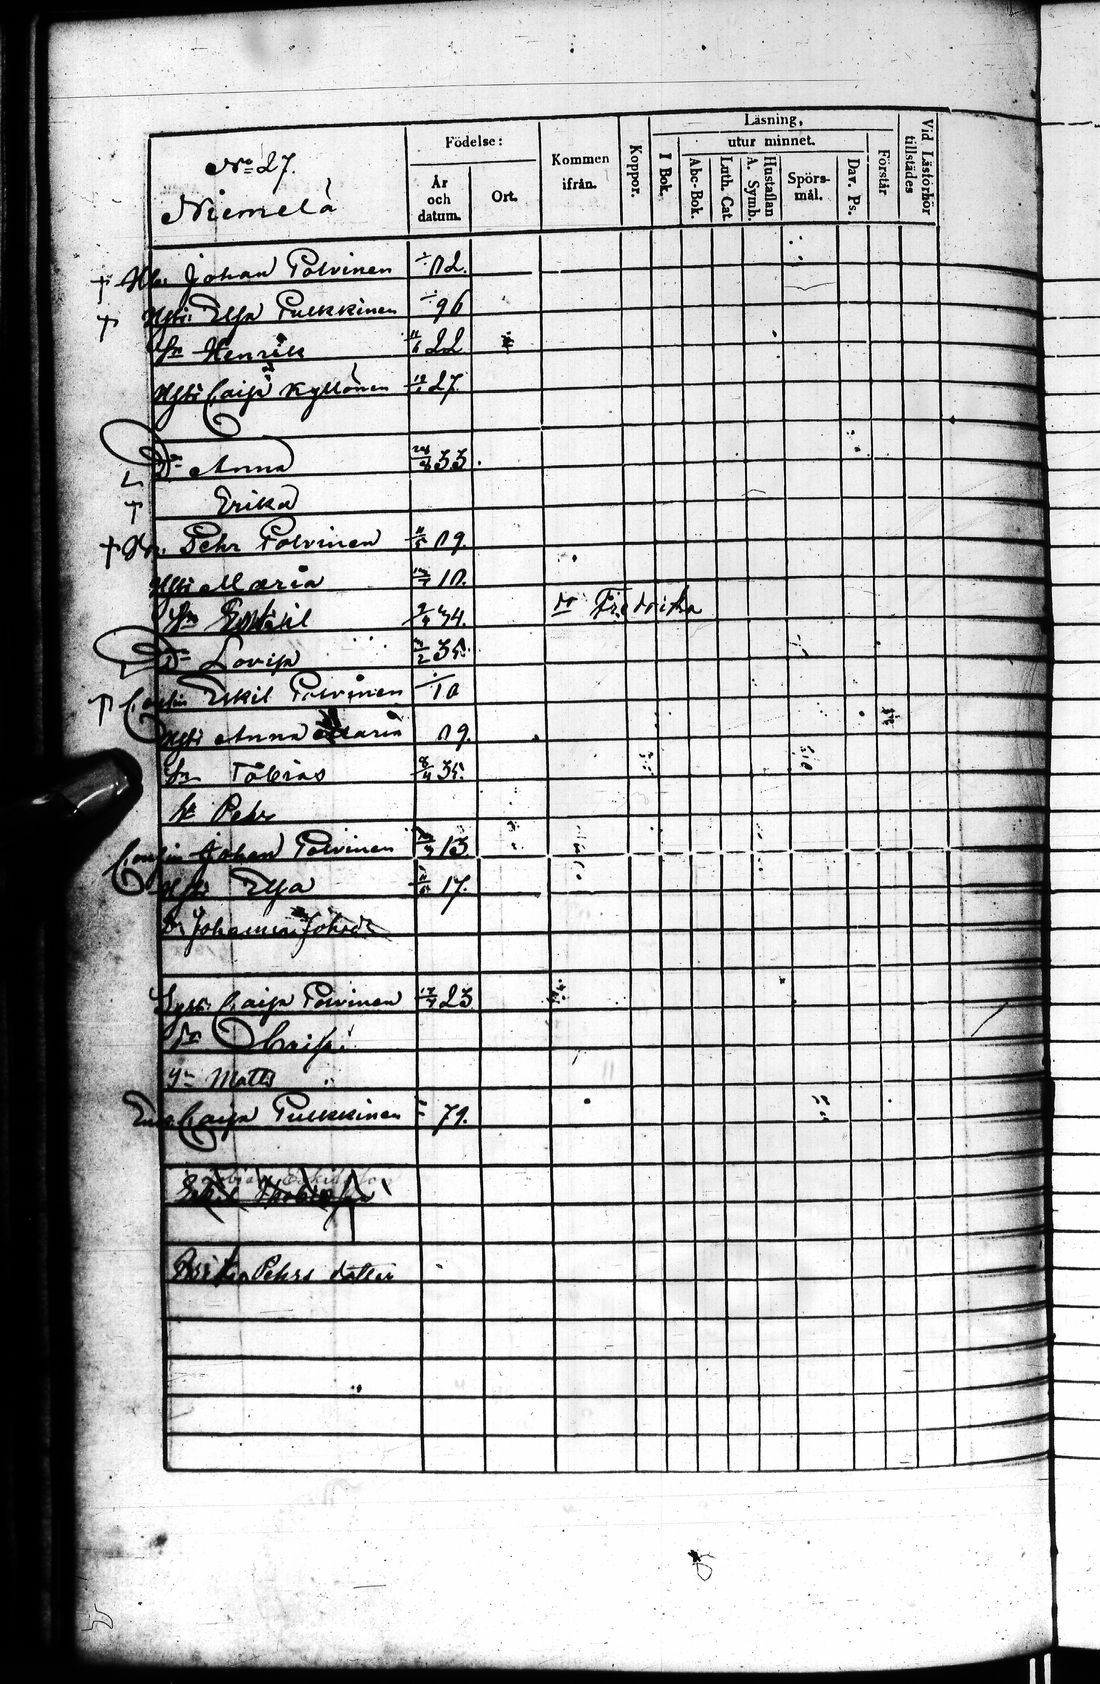 No 27.
Niemelä
Födelse:
År och datum.
Ort.
Kommen ifrån.
Koppor.
Läsning,
utur minnet.
I Bok.
Abc-Bok.
Luth. Cat.
A. Symb.
Hustaflan
Spörs-mål.
Dav. Ps.
Förstår
Vid Läsförhör tillstädes
Johan Polvinen 82.
Hstr. Elsa Pulkkinen 96
Sn Henrik 22
Hstr Caisa Kyllönen 27.
Dr Anna 33.
Erika
Pehr Polvinen 89.
Hstr Maria 10.
Sn Eskil 34. dr Fredrika
Dr Lovisa 35.
Cousin Eskil Polvinen 10
Hstr Anna Maria 09.
Sn Tobias 35.
Sn Pehr
Cousin Johan Polvinen 13.
Hstr Elsa 17.
Syst. Caisa Polvinen 23
Dr Caisa
Sn Matts
Caisa Pulkkinen 79.
Brita Pehrs dotter